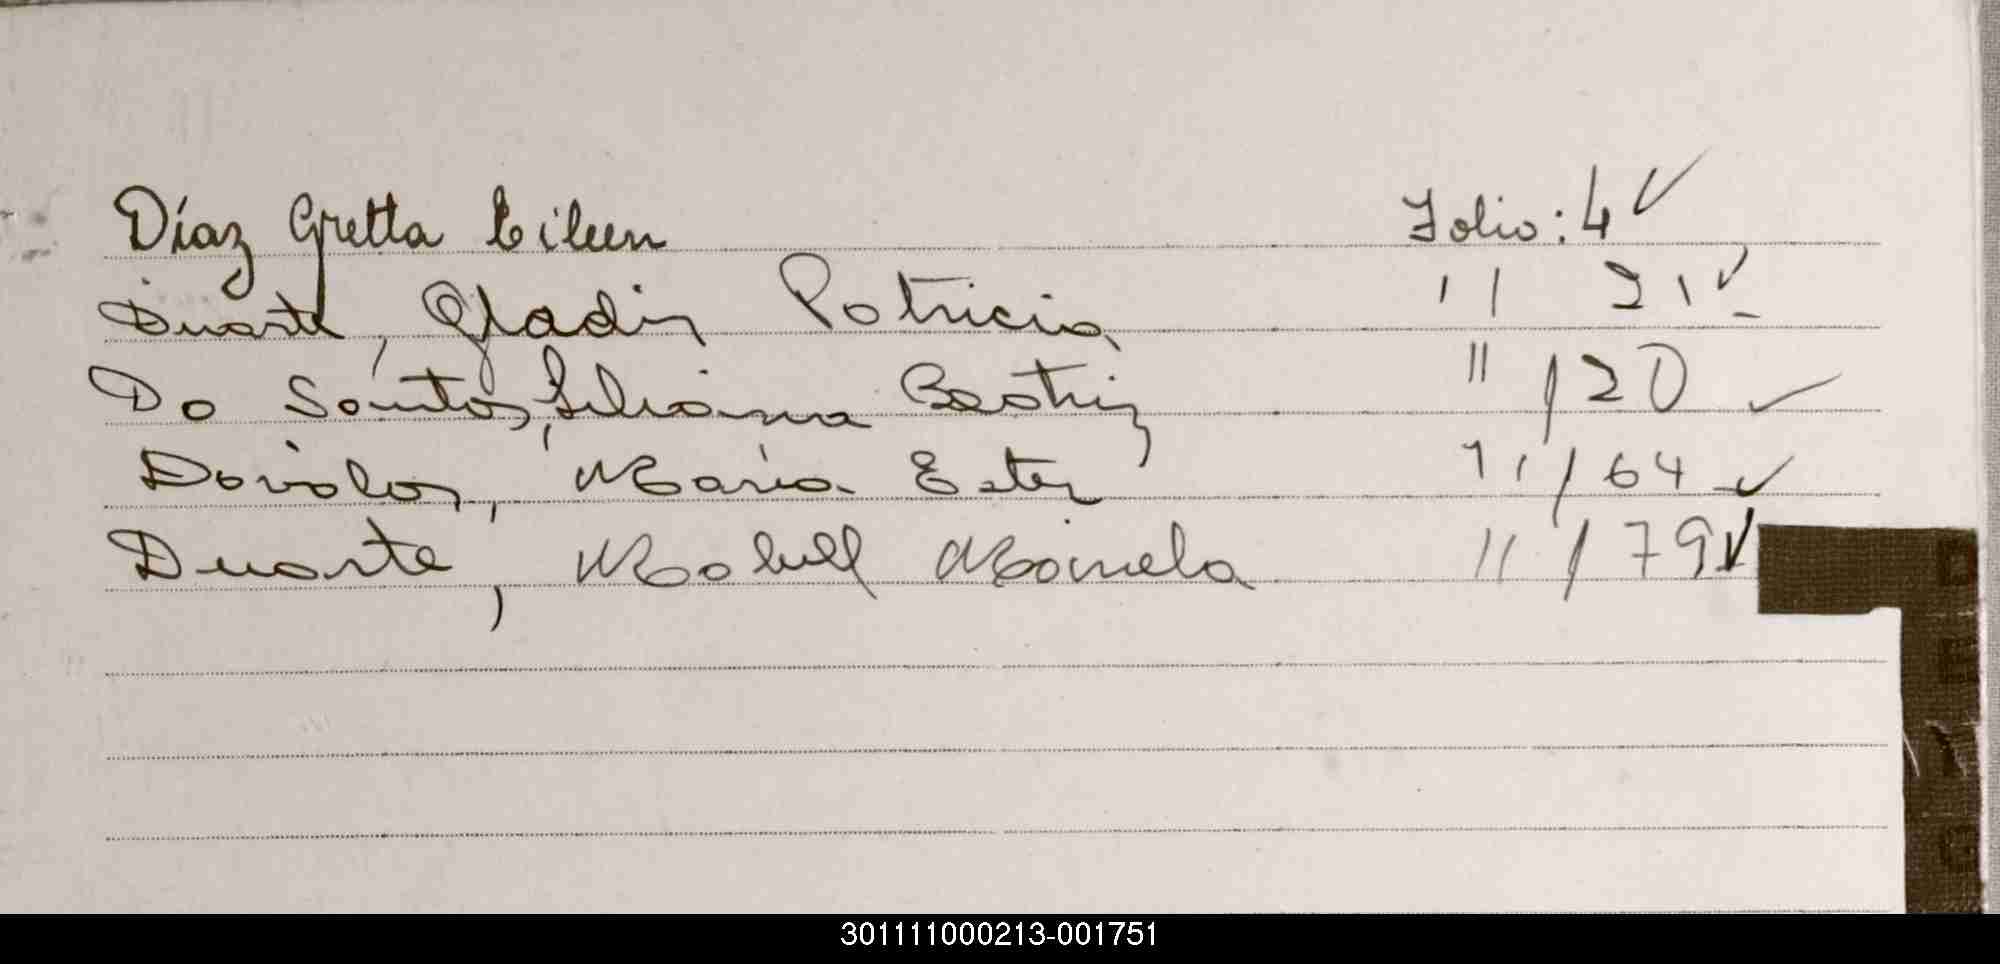 Díaz Gretta Eileen Folio: 4 ✓
Duarte, Gladis Patricia " 21 ✓
Do Santos, Liliana Beatriz " / 20 ✓
Dávalos, María Ester " / 64 ✓
Duarte, Mabell Mariela " / 79 ✓
D
E
301111000213-001751